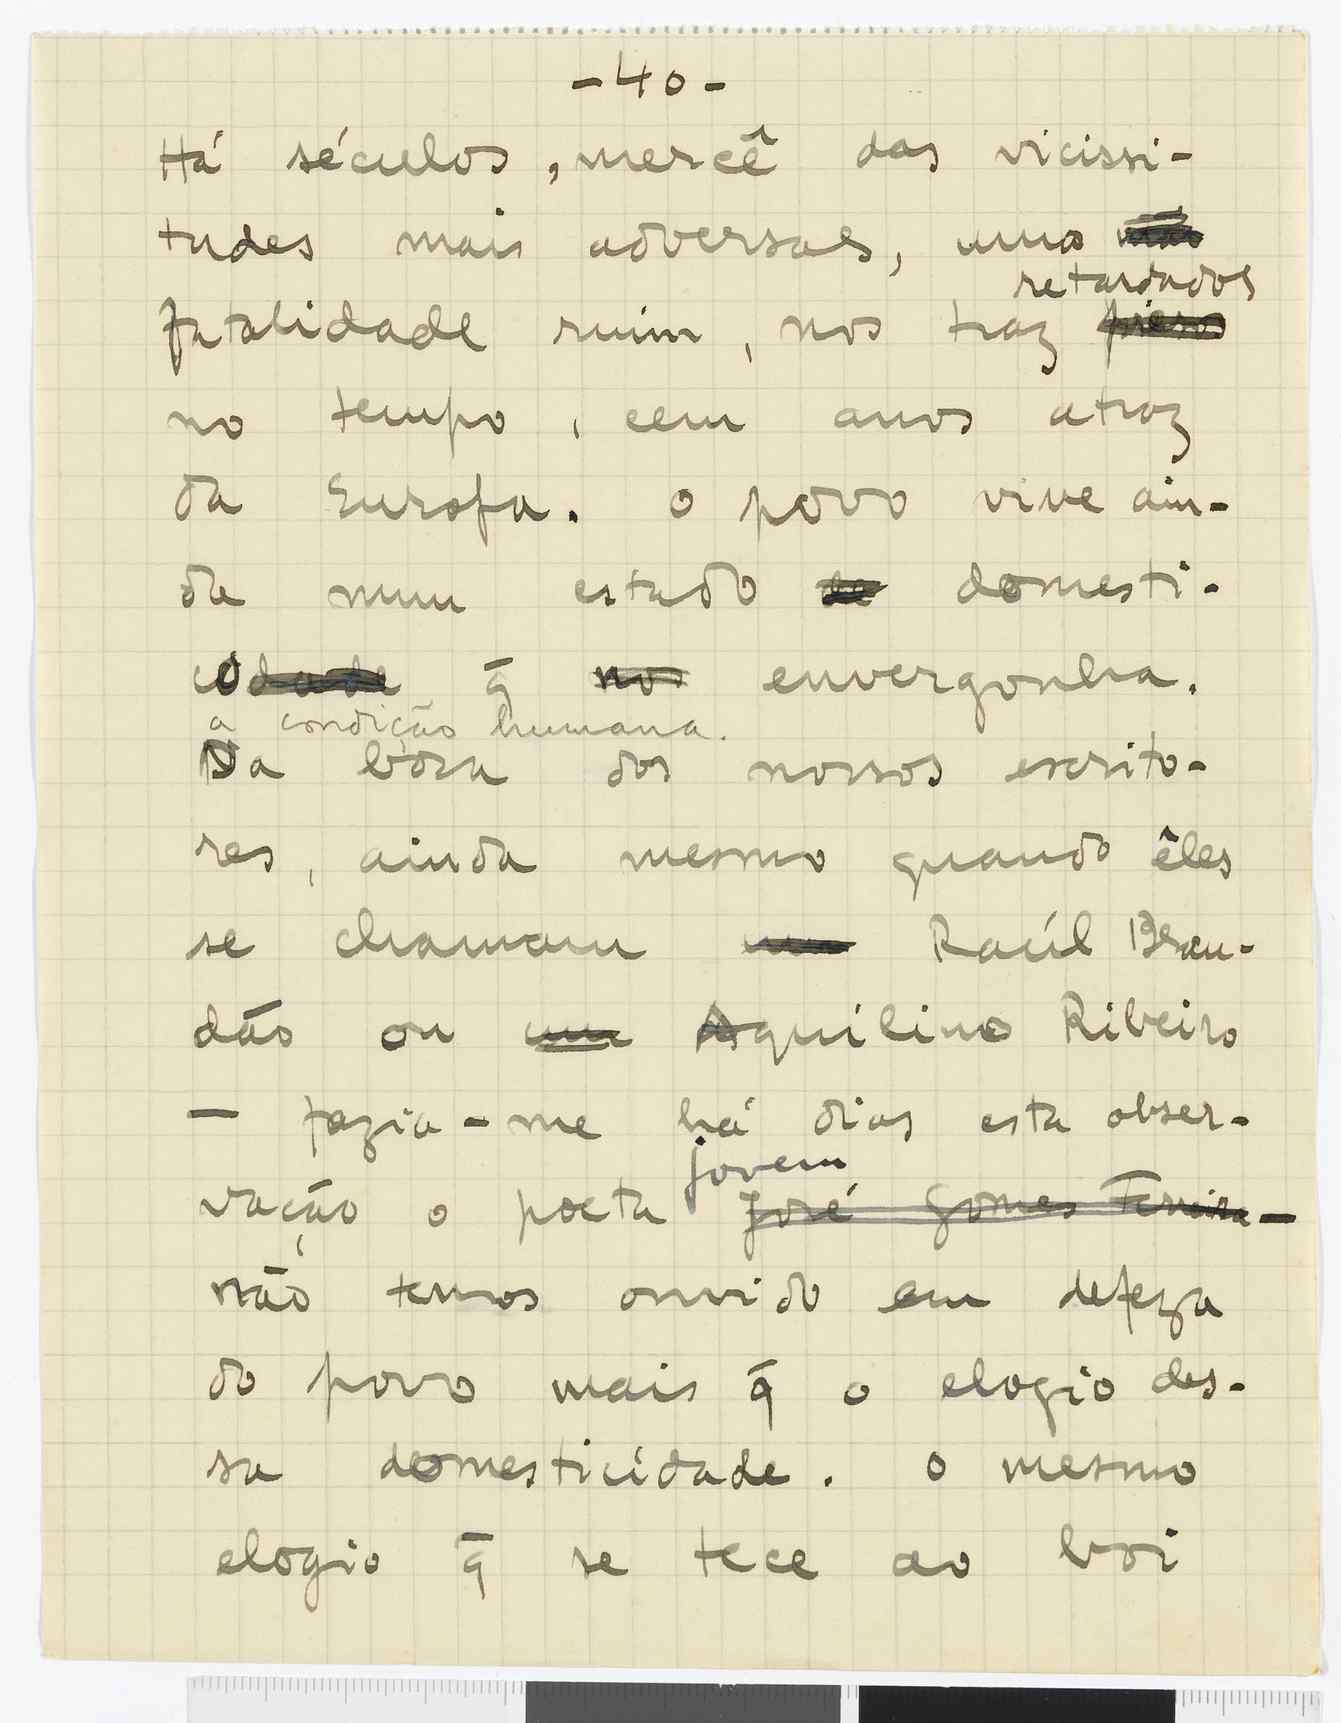 -40-
Há séculos, mercê das vicissi-
tudes mais adversas, uma
retardados
fatalidade ruim, nos traz
no tempo, cem anos atraz
da Europa. O povo vive ain-
da num estado de domesti-
co q̄ nos envergonha.
a condição humana.
Da bôca dos nossos escrito-
res, ainda mesmo quando êles
se chamam Raúl Bran-
dão ou um Aquilino Ribeiro
— fazia-me há dias esta obser-
jovem
vação o poeta José Gomes Ferreira —
não temos ouvido em defeza
do povo mais q̄ o elogio des-
sa domesticidade. O mesmo
elogio q̄ se tece ao boi